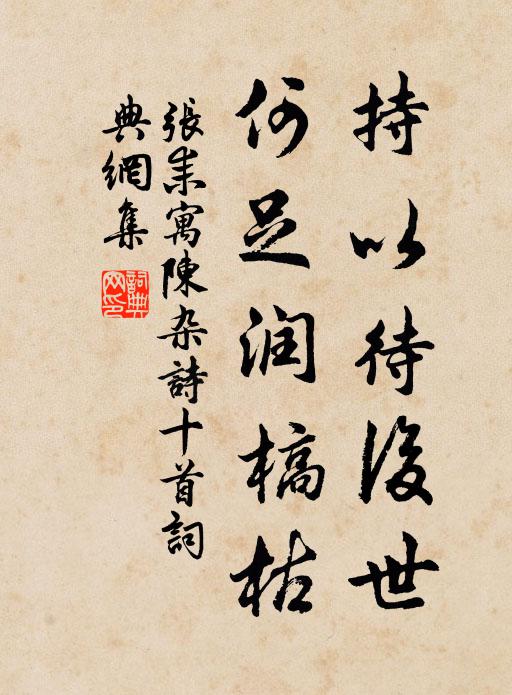 持以待後世
何足润槁枯
張耒寓陳杂詩十首詞
典網集
詞典网印